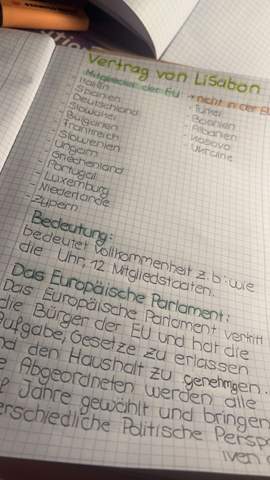 Vertrag von Lissabon
Mitglieder der EU → nicht in der EU
- Italien - Türkei
- Spanien - Bosnien
- Deutschland - Albanien
- Slowakei - Kosovo
- Bulgarien - Ukraine
- Frankreich
- Slowenien
- Ungarn
- Griechenland
- Portugal
- Luxemburg
- Niederlande
- Zypern
Bedeutung:
bedeutet Vollkommenheit z.b: wie
die Uhr, 12 Mitgliedstaaten.
Das Europäische Parlament:
Das Europäische Parlament vertritt
die Bürger der EU und hat die
Aufgabe, Gesetze zu erlassen
nd den Haushalt zu genehmgen.
e Abgeordneten werden alle
Jahre gewählt und bringen
erschiedliche Politische Persp
iven